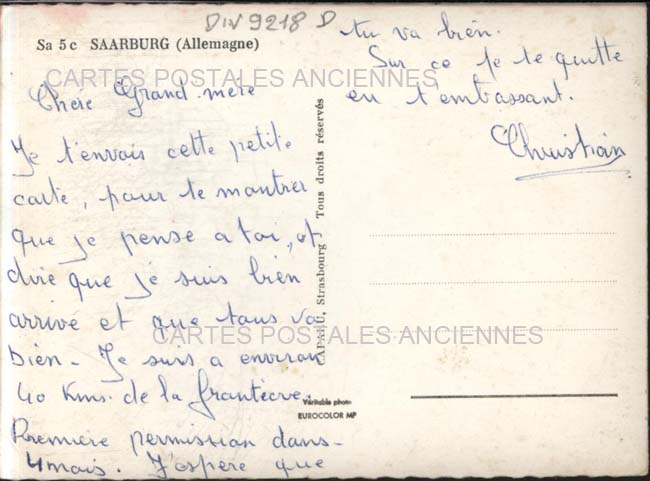 DIV 9218 D
Sa 5 c SAARBURG (Allemagne)
CARTES POSTALES ANCIENNES
Chère Grand-mère
Je t'envais cette petite
carte, pour te montrer
que je pense a toi, et
dire que je suis bien
arrivé et que tous va
bien. Je suis a environ
40 Kms. de la frontière.
Première permission dans
4 mois. J'espère que
tu va bien.
Sur ce je te quitte
en t'embassant.
Christian
Strasbourg - Tous droits réservés
CARTES POSTALES ANCIENNES
Véritable photo
EUROCOLOR MP